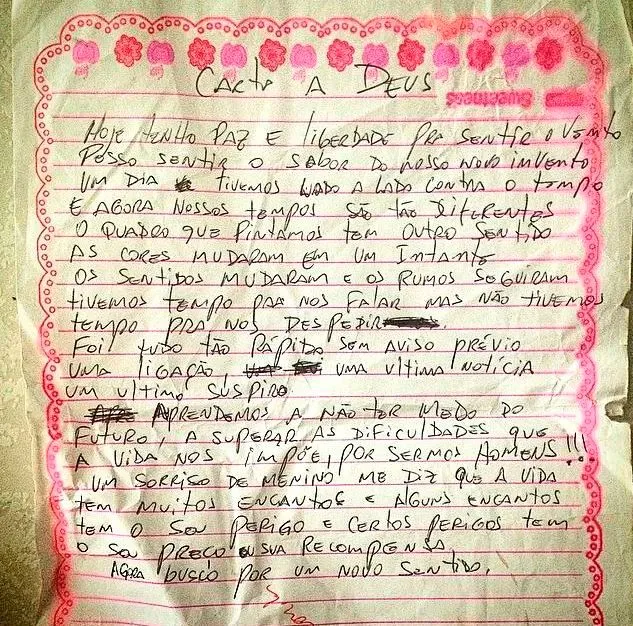 CARTA A DEUS
Sweetness
HOJE TENHO PAZ E LIBERDADE PRA SENTIR O VENTO
POSSO SENTIR O SABOR DO NOSSO NOVO INVENTO
UM DIA TIVEMOS LADO A LADO CONTRA O TEMPO
E AGORA NOSSOS TEMPOS SÃO TÃO DIFERENTES
O QUADRO QUE PINTAMOS TEM OUTRO SENTIDO
AS CORES MUDARAM EM UM INTANTE
OS SENTIDOS MUDARAM E OS RUMOS SEGUIRAM
TIVEMOS TEMPO PRA NOS FALAR MAS NÃO TIVEMOS
TEMPO PRA NOS DESPEDIR.
FOI TUDO TÃO RÁPIDO SEM AVISO PRÉVIO
UMA LIGAÇÃO, UMA ULTIMA NOTÍCIA
UM ULTIMO SUSPIRO
APRENDEMOS A NÃO TER MEDO DO
FUTURO, A SUPERAR AS DIFICULDADES QUE
A VIDA NOS IMPÕE, POR SERMOS HOMENS!!!
UM SORRISO DE MENINO ME DIZ QUE A VIDA
TEM MUITOS ENCANTOS E ALGUNS ENCANTOS
TEM O SEU PERIGO E CERTOS PERIGOS TEM
O SEU PREÇO OU SUA RECOMPENSA
AGORA BUSCO POR UM NOVO SENTIDO.